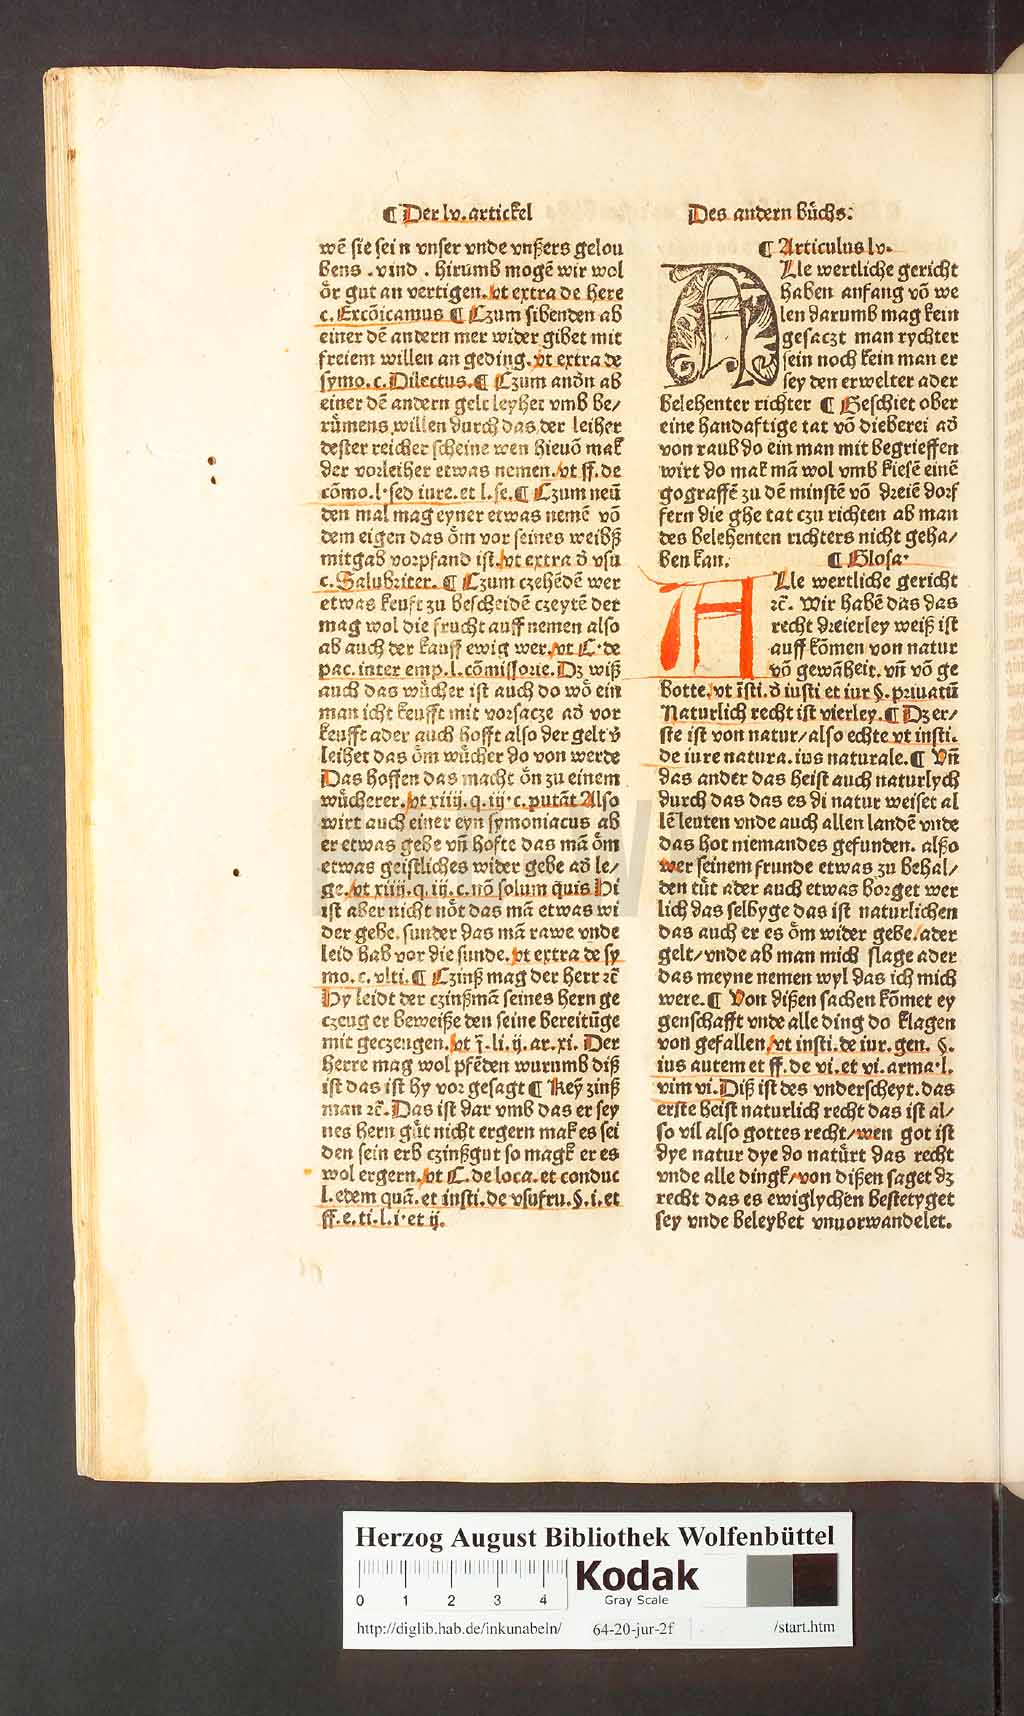 ¶ Der lv. artickel
Des andern bůchs:
wē sie sein vnser vnde vnßers gelou
bens . vind . hirumb mogē wir wol
ȯr gut an vertigen. vt extra de here
c. Excōicamus ¶ Czum sibenden ab
einer dē andern mer wider gibet mit
freiem willen an geding. vt extra de
symo. c. Dilectus. ¶ Czum andn ab
einer dē andern gelt leyhet vmb be/
růmens willen durch das der leiher
dester reicher scheine wen hieuō mak
der vorleiher etwas nemen. vt ff. de
cōmo. l. sed iure. et l. se. ¶ Czum neū
den mal mag eyner etwas nemē vō
dem eigen das ȯm vor seines weibß
mitgab vorpfand ist. vt extra d vsu
c. Salubriter. ¶ Czum czehēdē wer
etwas keuft zu bescheidē czeytē der
mag wol die frucht auff nemen also
ab auch der kauff ewig wer. vt C. de
pac. inter emp. l. cōmissorie. Dz wiß
auch das wůcher ist auch do wō ein
man icht keufft mit vorsacze ad vor
keufft ader auch hofft also der gelt v
leihet das ȯm wůcher do von werde
Das hoffen das macht ȯn zu einem
wůcherer. vt xiiij. q. iij. c. putāt Also
wirt auch einer eyn symoniacus ab
er etwas gebe vn̄ hofte das mā ȯm
etwas geistliches wider gebe ad le/
ge. vt xiiij. q. iij. c. nō solum quis Hi
ist aber nicht nȯt das mā etwas wi
der gebe. sunder das mā rawe vnde
leid hab vor die sunde. vt extra de sy
mo. c. vlti. ¶ Czinß mag der herr ꝛc̄
Hy leidt der czinßmā seines hern ge
czeug er beweiße den seine bereitūge
mit geczeugen. vt j. li. ij. ar. xi. Der
herre mag wol pfēden wurumb diß
ist das ist hy vor gesagt ¶ Key zinß
man ꝛc̄. Das ist dar vmb das er sey
nes hern gůt nicht ergern mak es sei
den sein erb czinßgut so magk er es
wol ergern. vt C. de loca. et conduc
l. edem quā. et insti. de vsufru. §. i. et
ff. e. ti. l. i. et ij.
¶ Articulus lv.
ALle wertliche gericht
haben anfang vō we
len darumb mag kein
gesaczt man rychter
sein noch kein man er
sey den erwelter ader
belehenter richter ¶ Geschiet ober
eine handaftige tat vō dieberei ad
von raub do ein man mit begrieffen
wirt do mak mā wol vmb kiesē einē
gograffē zu dē minstē vō dreiē dorf
fern die ghe tat czu richten ab man
des belehenten richters nicht geha/
ben kan. ¶ Glosa.
ALle wertliche gericht
ꝛc̄. Wir habē das das
recht dreierley weiß ist
auff kōmen von natur
vō gewāheit. vn̄ vō ge
botte. vt īsti. d iusti et iur §. priuatū
Naturlich recht ist vierley. ¶ Dz er/
ste ist von natur/also echte vt insti.
de iure natura. ius naturale. ¶ Vn̄
das ander das heist auch naturlych
durch das das es di natur weiset al
lē leuten vnde auch allen landē vnde
das hot niemandes gefunden. alßo
wer seinem frunde etwas zu behal/
den tůt ader auch etwas borget wer
lich das selbyge das ist naturlichen
das auch er es ȯm wider gebe. ader
gelt/vnde ab man mich slage ader
das meyne nemen wyl das ich mich
were. ¶ Von dißen sachen kōmet ey
genschafft vnde alle ding do klagen
von gefallen/vt insti. de iur. gen. §.
ius autem et ff. de vi. et vi. arma. l.
vim vi. Diß ist des vnderscheyt. das
erste heist naturlich recht das ist al/
so vil also gottes recht/wen got ist
dye natur dye do natůrt das recht
vnde alle dingk/von dißen saget dz
recht das es ewiglychen bestetyget
sey vnde beleybet vnuorwandelet.
HAB
Herzog August Bibliothek Wolfenbüttel
0 1 2 3 4
Kodak
Gray Scale
http://diglib.hab.de/inkunabeln/ 64-20-jur-2f /start.htm